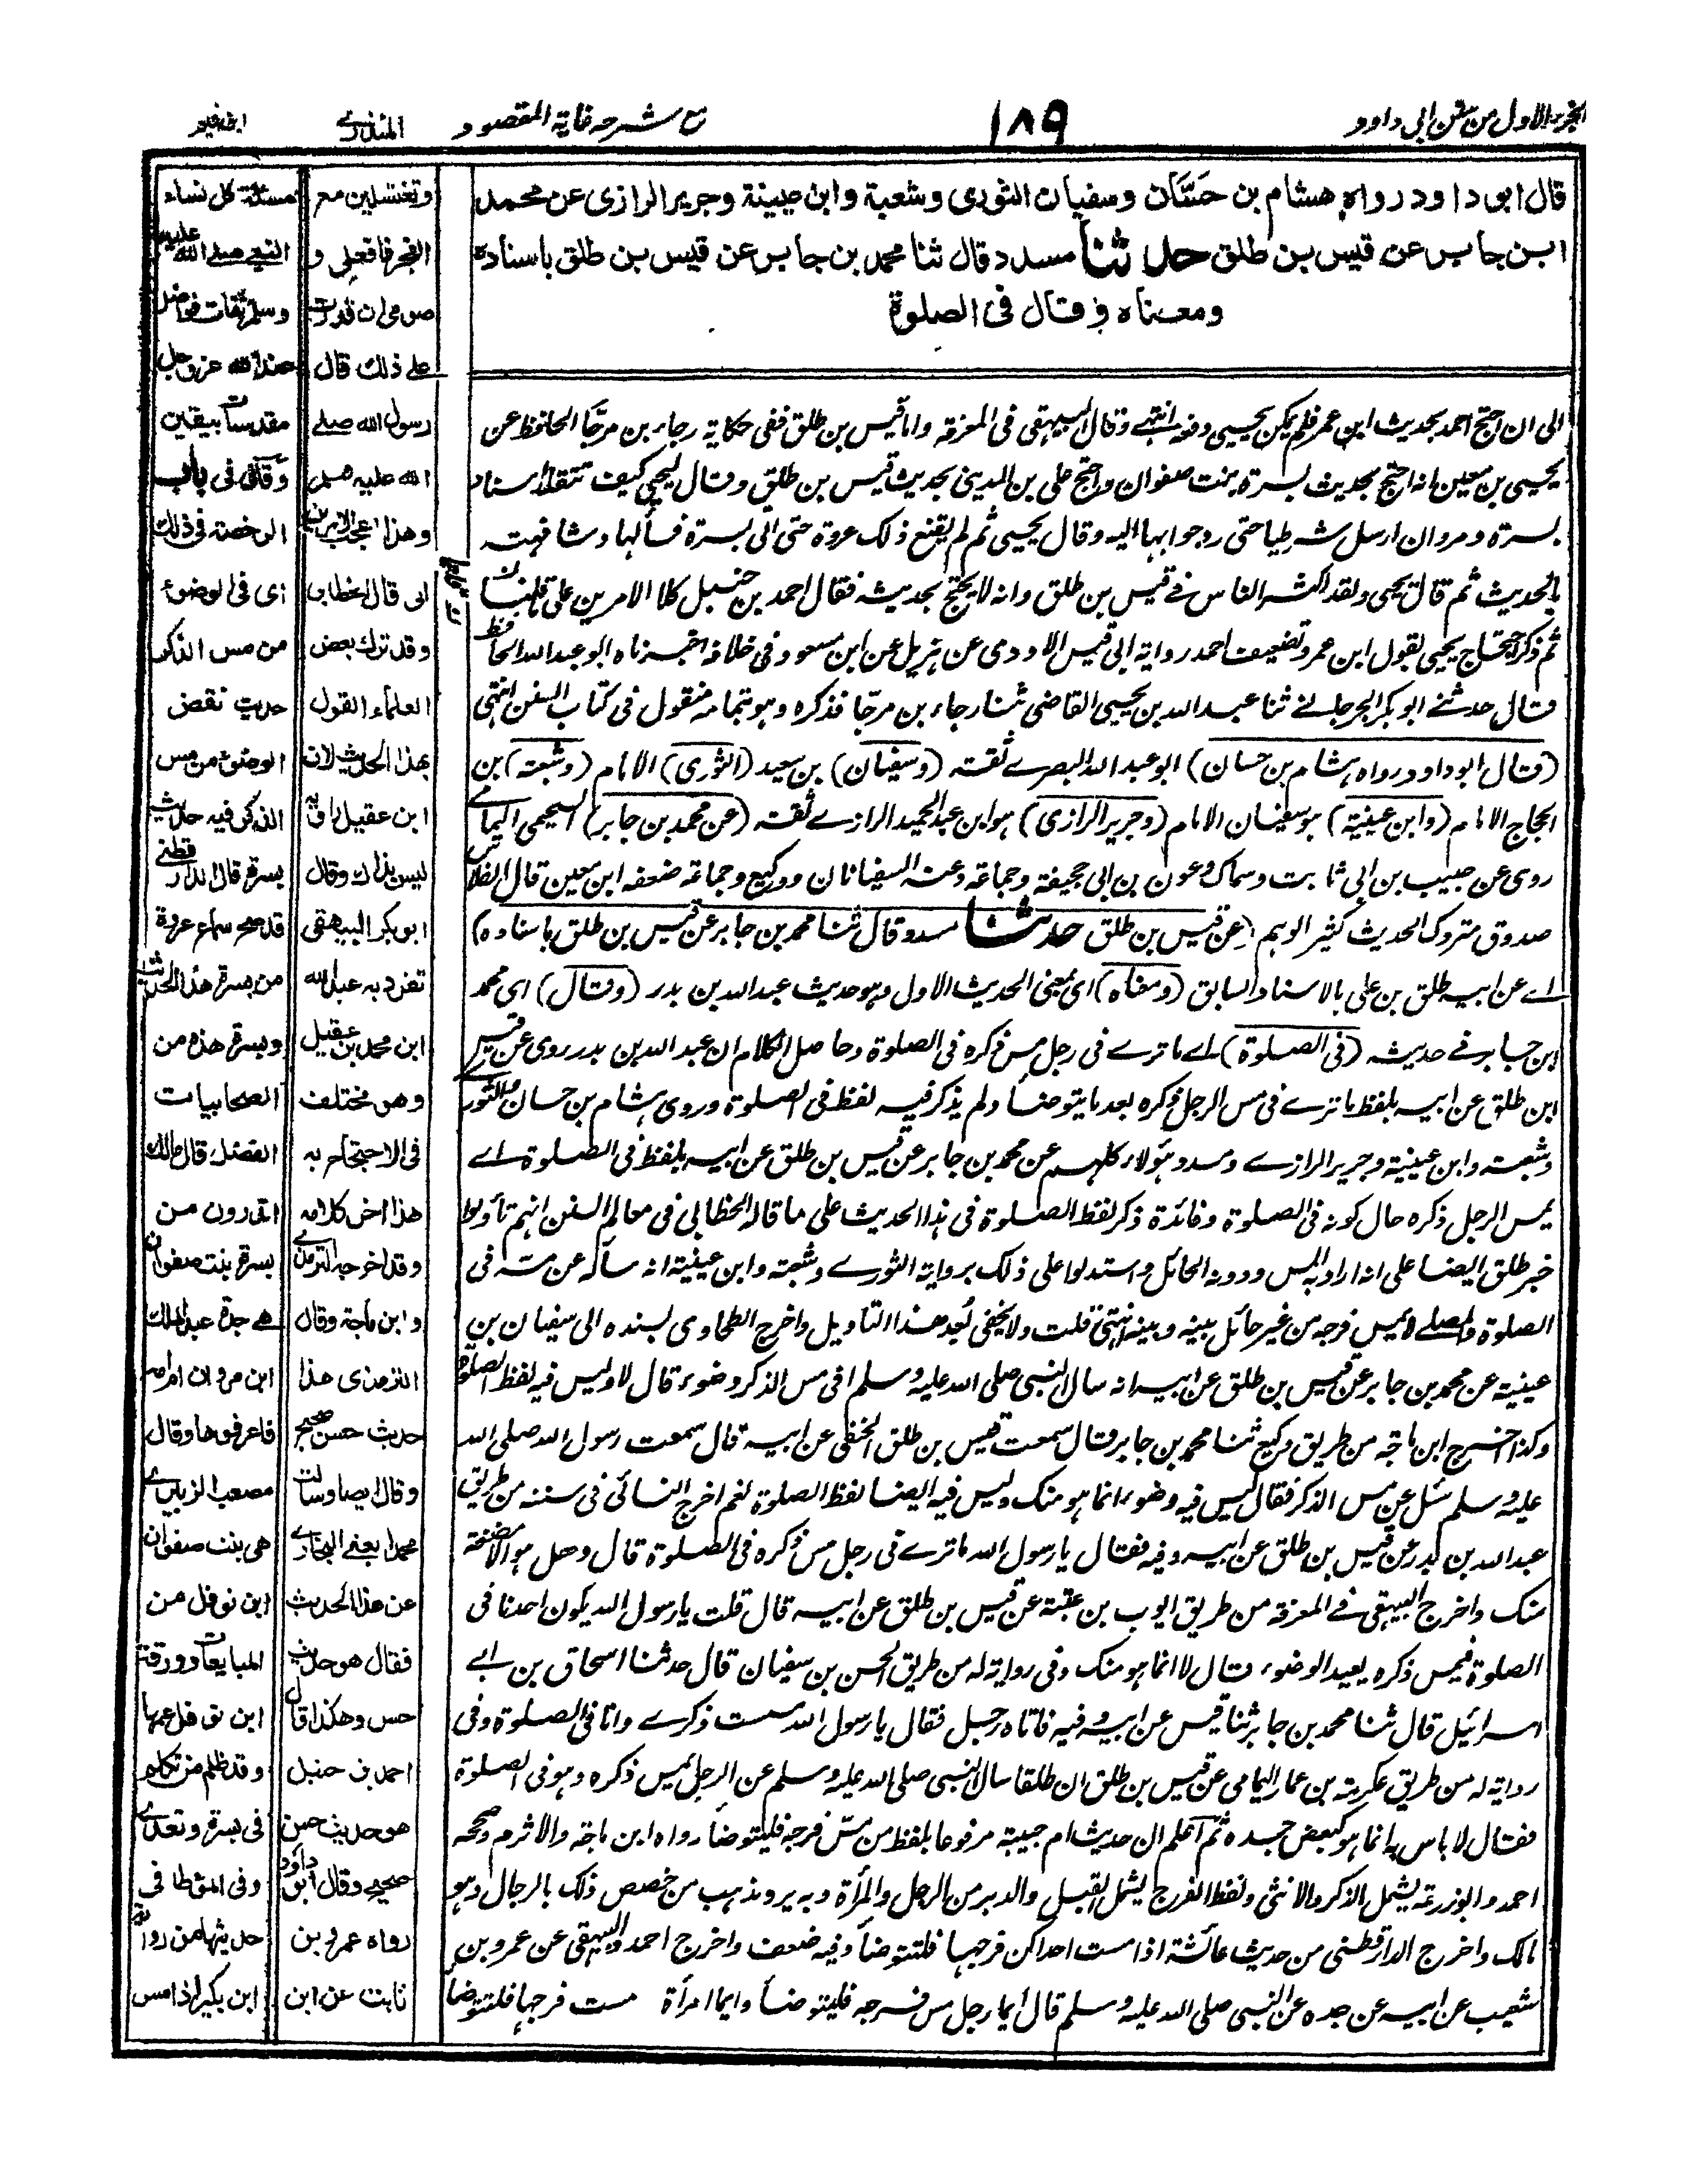 الجزء الاول من سنن ابي داود
١٨٩
مع شرحه غاية المقصود
المنذري
ابن قيم
قال ابو داود رواه هشام بن حسّان وسفيان الثوري وشعبة وابن عيينة وجرير الرازي عن محمد
ابن جابر عن قيس بن طلق حدثنا مسدد قال ثنا محمد بن جابر عن قيس بن طلق باسناده
ومعناه وقال في الصلوة
الى ان احتج احمد بحديث ابن عمر فلم يمكن يحيى دفعه انتهى وقال البيهقي في المعرفة واما قيس بن طلق ففي حكاية رجاء بن مرجّا الحافظ عن
يحيى بن معين انه احتج بحديث بسرة بنت صفوان واحتج علي بن المديني بحديث قيس بن طلق وقال ليحيى كيف تتقلد اسناد
بسرة ومروان ارسل شرطيا حتى رد جوابها اليه وقال يحيى ثم لم يقنع ذلك عروة حتى اتى بسرة فسألها وشافهته
بالحديث ثم قال يحيى ولقد اكثر الناس في قيس بن طلق وانه لا يحتج بحديثه فقال احمد بن حنبل كلا الامرين على ما قلتما
ثم ذكر احتجاج يحيى بقول ابن عمر وتضعيف احمد رواية ابي قيس الاودي عن هزيل عن ابن مسعود في خلافه اخبرناه ابو عبد الله الحافظ
قال حدثني ابو بكر الجراحي ثنا عبد الله بن يحيى القاضي ثنا رجاء بن مرجّا فذكره وهو بتمامه منقول في كتاب السنن انتهى
(قال ابو داود رواه هشام بن حسان) ابو عبد الله البصري ثقة (وسفيان) بن سعيد (الثوري) الامام (وشعبة) بن
الحجاج الامام (وابن عيينة) هو سفيان الامام (وجرير الرازي) هو ابن عبد الحميد الرازي ثقة (عن محمد بن جابر) السحيمي اليمامي
روى عن حبيب بن ابي ثابت وسماك وعون بن ابي جحيفة وجماعة وعنه السفيانان ووكيع وجماعة ضعفه ابن معين قال الفلاس
صدوق متروك الحديث كثير الوهم (عن قيس بن طلق حدثنا مسدد قال ثنا محمد بن جابر عن قيس بن طلق باسناده)
اي عن ابيه طلق بن علي بالاسناد السابق (ومعناه) اي بمعنى الحديث الاول وهو حديث عبد الله بن بدر (وقال) اي محمد
ابن جابر في حديثه (في الصلوة) اي ما ترى في رجل مس ذكره في الصلوة وحاصل الكلام ان عبد الله بن بدر روى عن قيس
ابن طلق عن ابيه بلفظ ما ترى في مس الرجل ذكره بعد ما يتوضأ ولم يذكر فيه لفظ في الصلوة وروى هشام بن حسان والثوري
وشعبة وابن عيينة وجرير الرازي ومسدد هؤلاء كلهم عن محمد بن جابر عن قيس بن طلق عن ابيه بلفظ في الصلوة اي
يمس الرجل ذكره حال كونه في الصلوة وفائدة ذكر لفظ الصلوة في هذا الحديث على ما قاله الخطابي في معالم السنن انهم تأولوا
خبر طلق ايضا على انه اراد به المس ودونه الحائل واستدلوا على ذلك برواية الثوري وشعبة وابن عيينة انه سأله عن مسه في
الصلوة والمصلي لا يمس فرجه من غير حائل بينه وبينه انتهى قلت ولا يخفى بُعد هذا التاويل واخرج الطحاوي بسنده الى سفيان بن
عيينة عن محمد بن جابر عن قيس بن طلق عن ابيه انه سال النبي صلى الله عليه وسلم افي مس الذكر وضوء قال لا وليس فيه لفظ الصلوة
وكذا اخرج ابن ماجة من طريق وكيع ثنا محمد بن جابر قال سمعت قيس بن طلق الحنفي عن ابيه قال سمعت رسول الله صلى الله
عليه وسلم سئل عن مس الذكر فقال ليس فيه وضوء انما هو منك وليس فيه ايضا لفظ الصلوة نعم اخرج النسائي في سننه من طريق
عبد الله بن بدر عن قيس بن طلق عن ابيه وفيه فقال يا رسول الله ما ترى في رجل مس ذكره في الصلوة قال وهل هو الا مضغة
منك واخرج البيهقي في المعرفة من طريق ايوب بن عتبة عن قيس بن طلق عن ابيه قال قلت يا رسول الله يكون احدنا في
الصلوة فيمس ذكره يعيد الوضوء قال لا انما هو منك وفي رواية له من طريق الحسن بن سفيان قال حدثنا اسحاق بن ابي
اسرائيل قال ثنا محمد بن جابر ثنا قيس عن ابيه وفيه فاتاه رجل فقال يا رسول الله مسست ذكري وانا في الصلوة وفي
رواية له من طريق عكرمة بن عمار اليمامي عن قيس بن طلق ان طلقا سال النبي صلى الله عليه وسلم عن الرجل يمس ذكره وهو في الصلوة
فقال لا باس به انما هو كبعض جسده ثم اعلم ان حديث ام حبيبة مرفوعا بلفظ من مسّ فرجه فليتوضأ رواه ابن ماجة والاثرم وصححه
احمد وابو زرعة يشمل الذكر والانثى ولفظ الفرج يشمل القبل والدبر من الرجل والمرأة وبه يرد مذهب من خصص ذلك بالرجال وهو
مالك واخرج الدارقطني من حديث عائشة اذا مست احداكن فرجها فلتتوضأ وفيه ضعف واخرج احمد والبيهقي عن عمرو بن
شعيب عن ابيه عن جده عن النبي صلى الله عليه وسلم قال ايما رجل مس فرجه فليتوضأ وايما امرأة مست فرجها فلتتوضأ
وتغتسلين مع
الفجر فافعلي و
صومي ان قدرت
على ذلك قال
رسول الله صلى
الله عليه وسلم
وهذا اعجب الامرين
الى قال الخطابي
وقد ترك بعض
العلماء القول
بهذا الحديث لان
ابن عقيل راويه
ليس بذاك وقال
ابو بكر البيهقي
تفرد به عبد الله
ابن محمد بن عقيل
وهو مختلف
في الاحتجاج به
هذا اخر كلامه
وقد اخرجه الترمذي
وابن ماجة وقال
الترمذي هذا
حديث حسن صحيح
وقال ايضا وسالت
محمدا يعني البخاري
عن هذا الحديث
فقال هو حديث
حسن وهكذا قال
احمد بن حنبل
هو حديث حسن
صحيح وقال ابو داود
رواه عمرو بن
ثابت عن ابن
مسئلة كل نساء
النبي صلى الله عليه
وسلم ثقات فواضل
عند الله عز وجل
مقدسات بيقين
وقال في باب
الرخصة في ذلك
اي في الوضوء
من مس الذكر
حديث نقض
الوضوء من مس
الذكر فيه حديث
بسرة قال الدارقطني
قد صح سماع عروة
من بسرة هذا الحديث
وبسرة هذه من
الصحابيات
الفضل قال مالك
اتدرون من
بسرة بنت صفوان
هي جدة عبد الملك
ابن مروان ام امه
فاعرفوها وقال
مصعب الزبيري
هي بنت صفوان
ابن نوفل من
المبايعات وورقة
ابن نوفل عمها
وقد ظلم من تكلم
في بسرة وتعدى
وفي الموطا في
حديثها من رواية
ابن بكير اذا مس